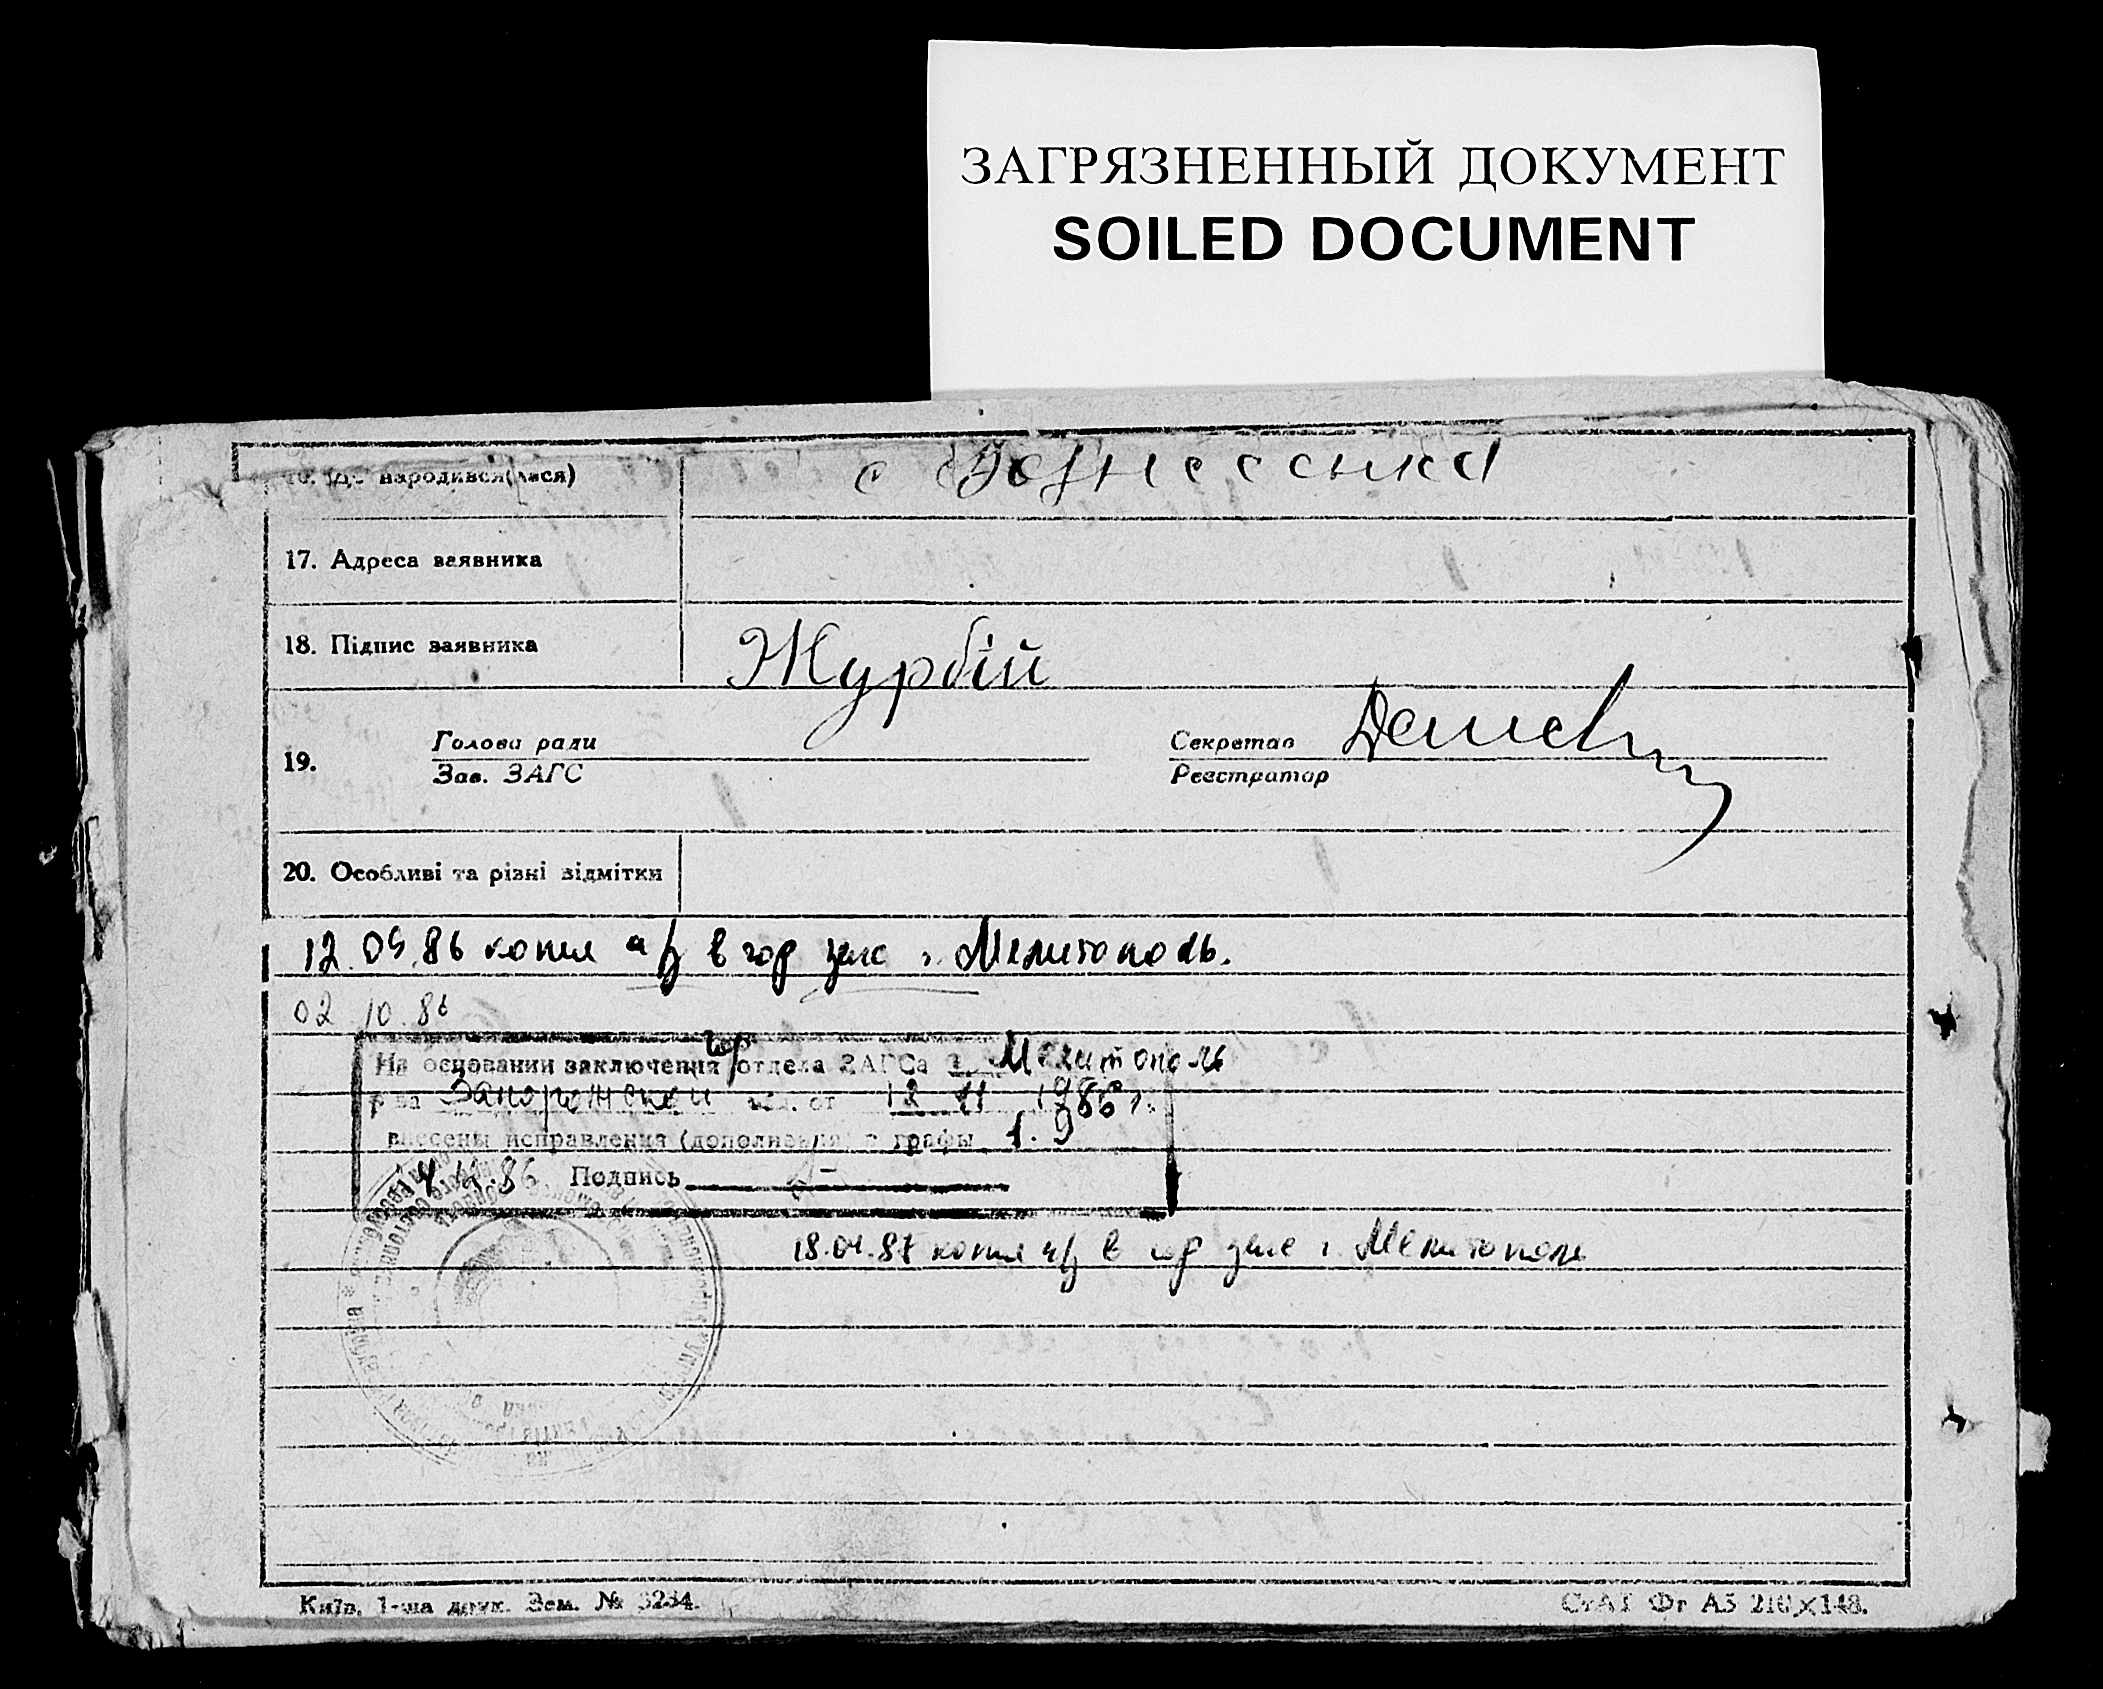 ЗАГРЯЗНЕННЫЙ ДОКУМЕНТ
SOILED DOCUMENT
народився(лася) с Вознесенка
17. Адреса заявника
18. Підпис заявника Журбій
19. Голова ради Секретар
Зав. ЗАГС Реєстратор
20. Особливі та різні відмітки
12.09.86 копия а/з в гор загс г. Мелитополь.
02 10.86
На основании заключения гор отдела ЗАГСа г. Мелитополь
р-на Запорожской обл. от 12 11 1986 г.
внесены исправления (дополнения) в графы 1.9
14.11.86 Подпись
18.04.87 копия а/з в гор загс г. Мелитополь
Київ, 1-ша друк. Зам. № 3234.
СтАТ Фг А5 210×148.